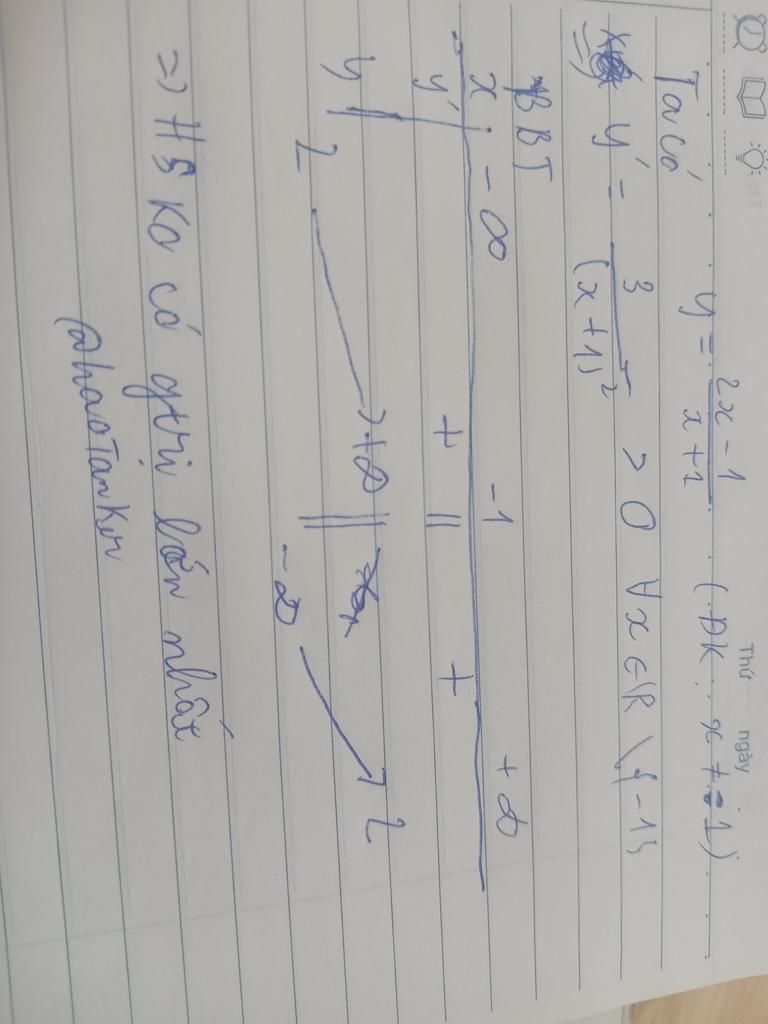 Thứ ngày
y = (2x - 1)/(x + 1) (ĐK: x ≠ -1)
Ta có
=> y' = 3/(x + 1)² > 0 ∀x ∈ ℝ \ {-1}
BBT
x -∞ -1 +∞
y' + || +
y 2 +∞ || -∞ 2
=> HS ko có gtrị lớn nhất
@haoTanKer